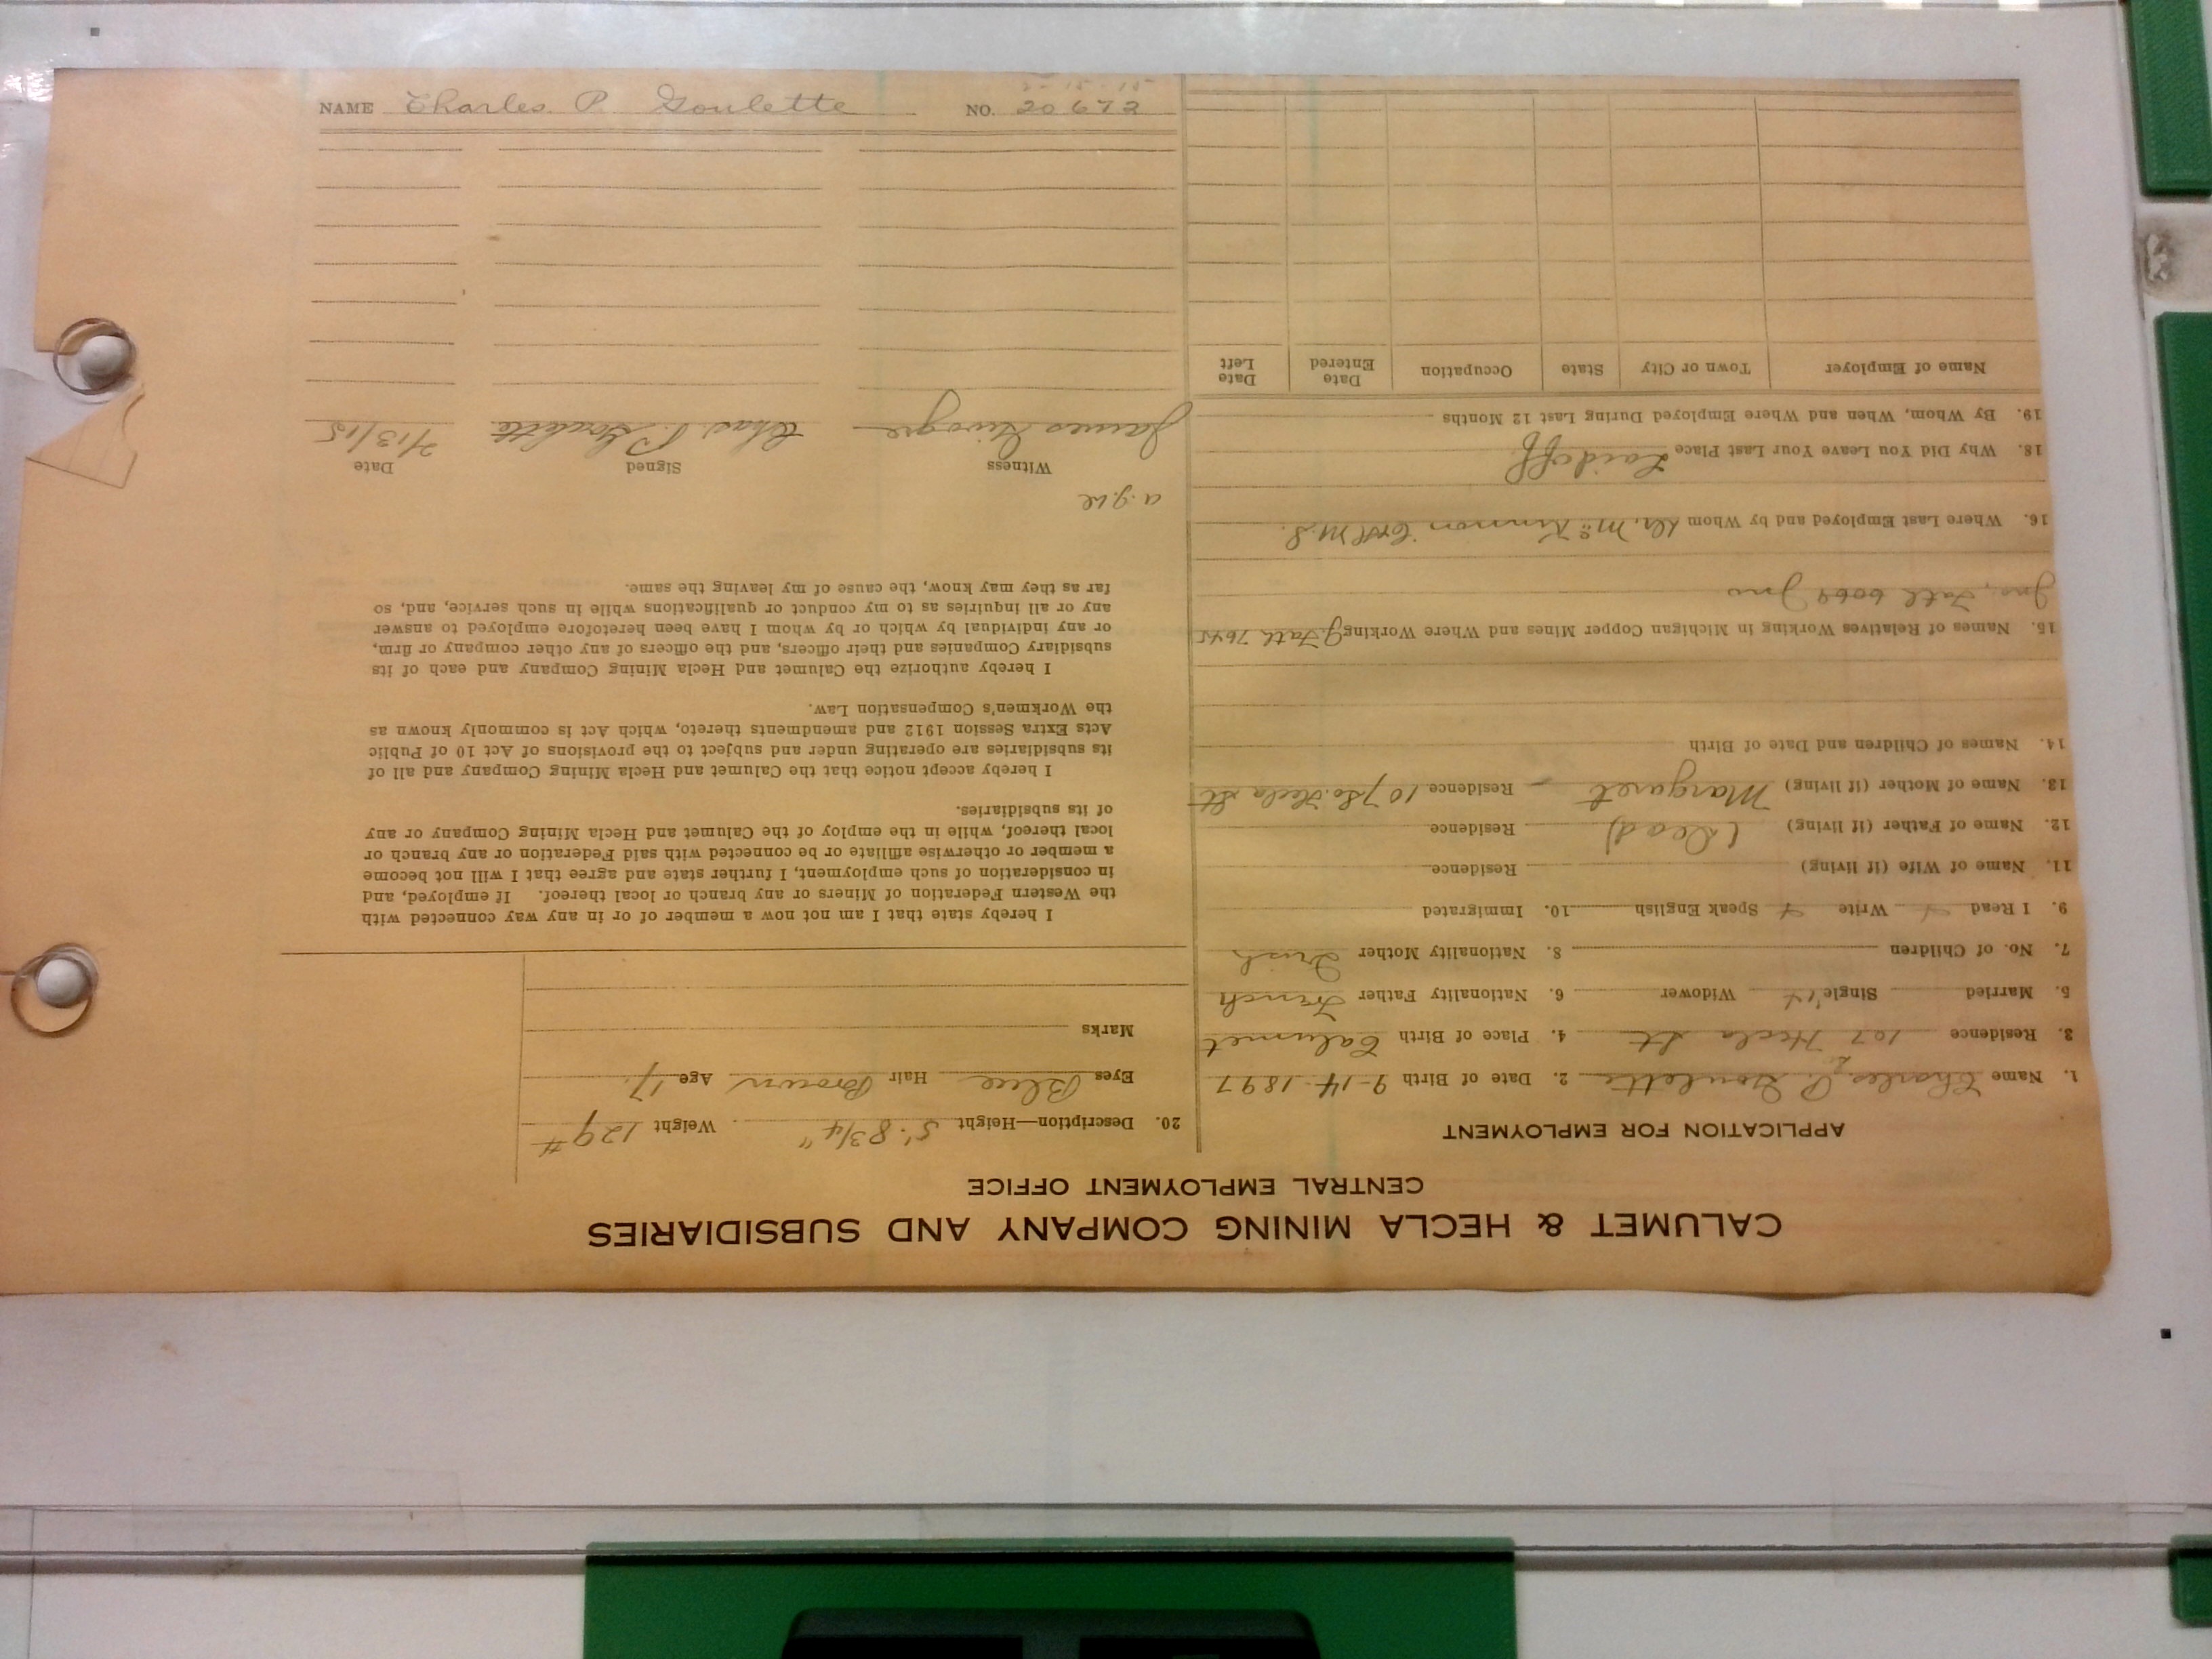 CALUMET & HECLA MINING COMPANY AND SUBSIDIARIES
CENTRAL EMPLOYMENT OFFICE
APPLICATION FOR EMPLOYMENT
1. Name Charles P. Goulette 2. Date of Birth 9-14-1897
3. Residence 107 So. Hecla St 4. Place of Birth Calumet
5. Married Single Widower 6. Nationality Father French
7. No. of Children 8. Nationality Mother Irish
9. I Read Write Speak English 10. Immigrated
11. Name of Wife (if living) Residence
12. Name of Father (if living) (Dead) Residence
13. Name of Mother (if living) Margaret Residence 107 So. Hecla St
14. Names of Children and Date of Birth
15. Names of Relatives Working in Michigan Copper Mines and Where Working
16. Where Last Employed and by Whom
18. Why Did You Leave Your Last Place Laid off
19. By Whom, When and Where Employed During Last 12 Months
Name of Employer Town or City State Occupation Date Entered Date Left
20. Description—Height 5'. 8 3/4" Weight 129#
Eyes Blue Hair Brown Age 17.
Marks
I hereby state that I am not now a member of or in any way connected with
the Western Federation of Miners or any branch or local thereof. If employed, and
in consideration of such employment, I further state and agree that I will not become
a member or otherwise affiliate or be connected with said Federation or any branch or
local thereof, while in the employ of the Calumet and Hecla Mining Company or any
of its subsidiaries.
I hereby accept notice that the Calumet and Hecla Mining Company and all of
its subsidiaries are operating under and subject to the provisions of Act 10 of Public
Acts Extra Session 1912 and amendments thereto, which Act is commonly known as
the Workmen's Compensation Law.
I hereby authorize the Calumet and Hecla Mining Company and each of its
subsidiary Companies and their officers, and the officers of any other company or firm,
or any individual by which or by whom I have been heretofore employed to answer
any or all inquiries as to my conduct or qualifications while in such service, and, so
far as they may know, the cause of my leaving the same.
Witness Signed Date
James Chas. P. Goulette 2/13/15
NAME Charles P. Goulette NO. 20672